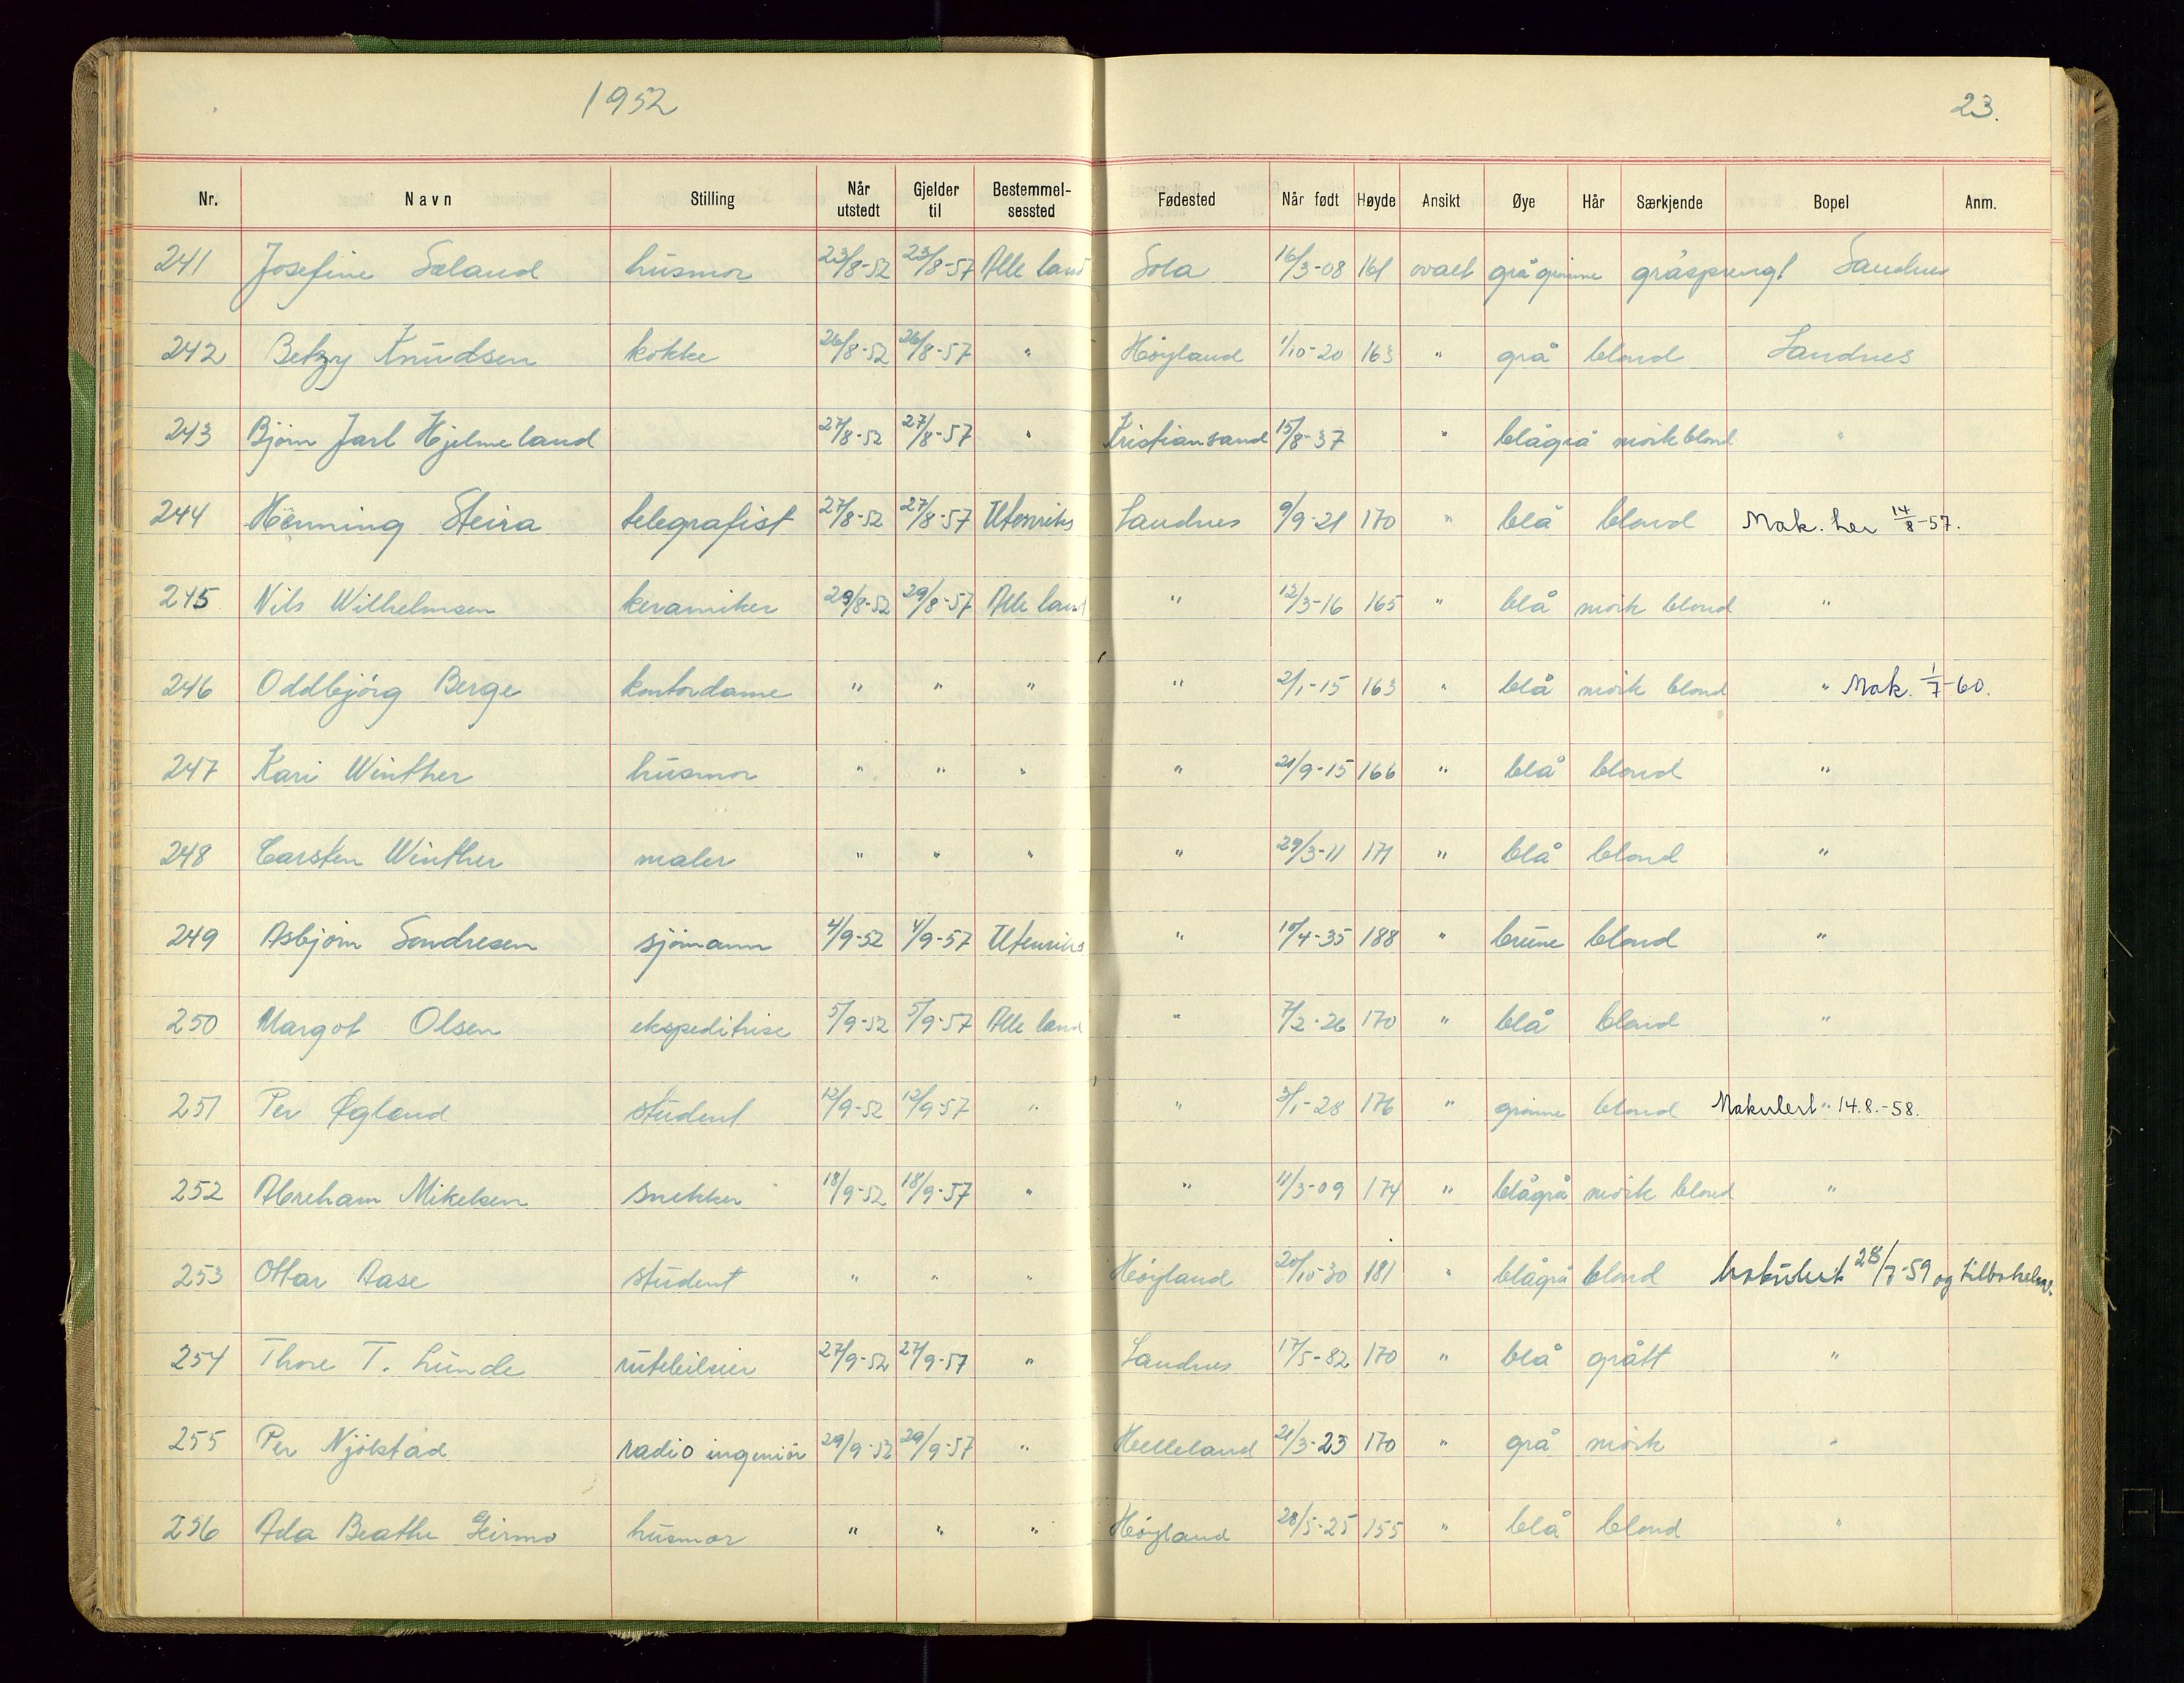 1952 23.
Nr. Navn Stilling Når utstedt Gjelder til Bestemmel-sessted Fødested Når født Høyde Ansikt Øye Hår Særkjende Bopel Anm.
241 Josefine Sæland husmor 23/8-52 23/8-57 Alle land Sola 16/3-08 161 ovalt grågrønne gråsprengt Sandnes
242 Betzy Knudsen kokke 26/8-52 26/8-57 " Høyland 1/10-20 163 " grå blond Sandnes
243 Bjørn Jarl Hjelmeland 27/8-52 27/8-57 " Kristiansand 15/8-37 " blågrå mörkblond "
244 Henning Steira telegrafist 27/8-52 27/8-57 Utenriks Sandnes 9/9-21 170 " blå blond Mak. her 14/8-57.
245 Nils Wilhelmsen keramiker 29/8-52 29/8-57 Alle land " 12/3-16 165 " blå mörk blond "
246 Oddbjörg Berge kontordame " " " " 2/1-15 163 " blå mörk blond " Mak. 1/7-60.
247 Kari Winther husmor " " " " 21/9-15 166 " blå blond "
248 Carsten Winther maler " " " " 29/3-11 171 " blå blond "
249 Asbjörn Sondresen sjömann 4/9-52 4/9-57 Utenriks " 10/4-35 188 " brune blond "
250 Margot Olsen ekspeditrise 5/9-52 5/9-57 Alle land " 7/2-26 170 " blå blond "
251 Per Øgland student 12/9-52 12/9-57 " " 3/1-28 176 " grönne blond Makulert " 14.8.-58.
252 Abreham Mikelsen snekker 18/9-52 18/9-57 " " 11/3-09 174 " blågrå mörk blond "
253 Ottar Aase student " " " Høyland 20/10-30 181 " blågrå blond Makulert 28/7-59 og
254 Thore T. Lunde rutebileier 27/9-52 27/9-57 " Sandnes 17/5-82 170 " blå grått "
255 Per Njölstad radio ingeniör 29/9-52 29/9-57 " Helleland 21/3-23 170 " grå mörk "
256 Ada Beathe Geirmo husmor " " " Høyland 28/5-25 155 " blå blond "